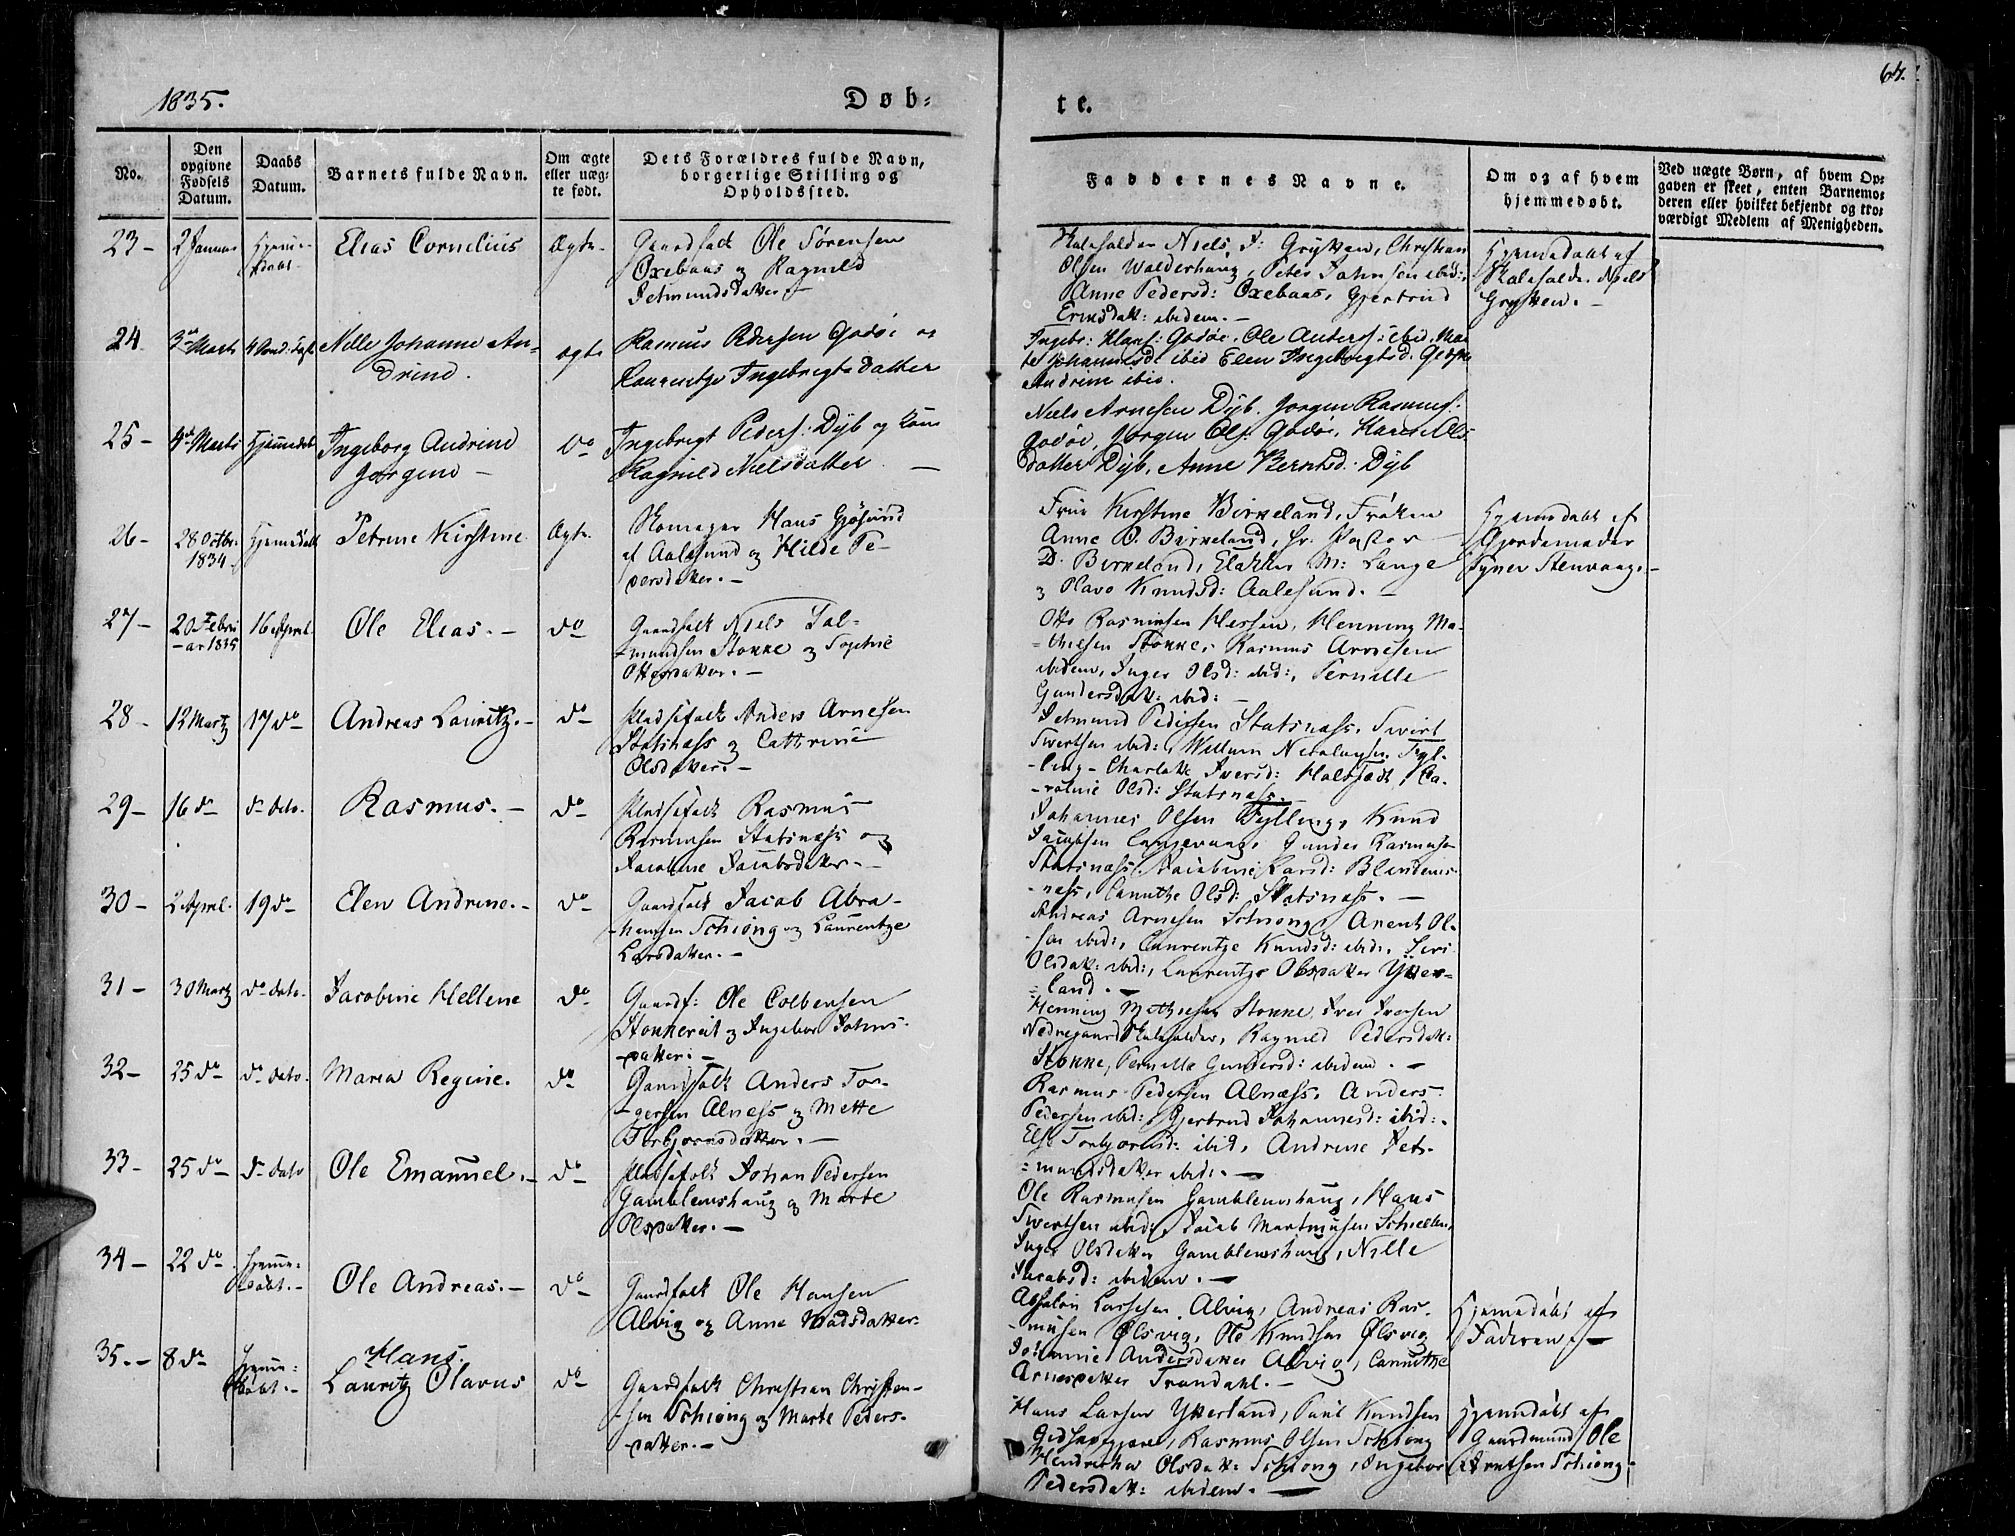 1835.
Døb-
te.
64.
No.
Den opgivne Fødsels Datum.
Daabs Datum.
Barnets fulde Navn.
Om ægte eller uæg-te født.
Dets Forældres fulde Navn, borgerlige Stilling og Opholdssted.
Faddernes Navne.
Om og af hvem hjemmedøbt.
Ved uægte Børn, af hvem Op-
gaven er skeet, enten Barnemo-
deren eller hvilket bekjendt og tro-
værdigt Medlem af Menigheden.
23 -
Elias Cornelius
Ægte
Gaardfolk Ole Sørensen
Oxebaas og Ragnild
Niels
Christian
Olsen Walderhaug, Peter
Anne Pedersd: Oxebaas, Gjertrud
ibidem. -
Hjemedøbt af
24
Nille Johanne An-
drine.
ægte
Rasmus Pedersen Godøe og
Laurentze Ingebrigtsdatter
Godøe, Ole Anders: ibid,
Johannesd: ibid Elen Ingebrigtsd. Godøe
Andrine ibid.
25 -
Ingeborg Andrine
Jørgine -
do
Ingebrigt Peders: Dyb og Kone
Ragnild Nielsdatter -
Niels Arnesen Dyb. Jørgen Rasmus:
Godøe, Jørgen Godøe, Karen Ols
datter Dyb, Anne Berntsd. Dyb
26 -
28 Octbr.
1834
Petrine Kirstine
Ægte
Hans
af Aalesund og Hilde Pe-
dersdatter. -
Kirstine Birkeland, Frøken
Anne D. Birkeland, Hr. Pastor
D. Birkeland, M: Lange
Knudsd: Aalesund. -
Hjemedøbt af
Gjordemoder
27 -
20 Febru
-ar 1835
16 April
Ole Elias. -
do
Gaardfolk Niels Sal-
Stokke og Sophie
Ottesdatter. -
Otto Rasmussen Hessen, Henning Ma-
-thiesen Stokke, Rasmus Arnesen
ibidem, Inger Olsd: ibid:, Pernille
Gundersdatt: ibid: -
28 -
12 Martz
17 do
Andreas Lauritz. -
do
Pladsefolk Anders Arnesen
Statsnæss og Cathrine
Olsdatter. -
Statsnæss, Sivert
Sivertsen ibid:, Willum Nicolaysen
-ling - Charlotte Iversd: Ka-
-roline Olsd: Statsnæss.
29 -
16 do
do dato.
Rasmus. -
do
Pladsefolk Rasmus
Rasmusen Statsnæss og
Jacobine Jacobsdatter. -
Johannes Olsen Fylling, Knud
Jacobsen Langevaag, Gunder Rasmusen
Statsnæss, Jacobine Larsd: Blindems-
-næss, Canuthe Olsd: Statsnæss. -
30 -
2 April.
19 do
Elen Andrine. -
do
Gaardfolk Jacob Abra-
-hamsen Schiong og Laurentze
Larsdatter. -
Andreas Arnesen Schiong, Arent Ol-
-sen ibid:, Laurentze Knudsd: ibid:, Siri
Olsdat: ibid:, Laurentze Olsdatter Ytter-
-land. -
31 -
30 Martz
do dato.
Jacobine Hellene
do
Gaardf: Ole Colbensen
og Ingebor Johns-
datter. -
Henning Mathiesen Stokke, Iver Iversen
Ragnild Pedersdatt:
Stokke, Pernille Gundersd: ibidem. -
32 -
25 do
do dato.
Maria Regine.
do
Gaardfolk Anders Tor-
-gersen Alnæss og Mette
Torbjørnsdatter. -
Rasmus Pedersen Alnæss, Anders
Pedersen ibid: Gjertrud Johannesd: ibid:.
Torbjørnsd: ibid, Andrine Jet-
-mundsdatter ibid: -
33 -
25 do
do dato
Ole Emanuel. -
do
Pladsefolk Johan Pedersen
Gamblemshaug og Marte
Olsdatter. -
Ole Rasmusen Gamblemshaug, Hans
Sivertsen ibid:, Jacob Martinusen
Inger Olsdatter Gamblemshaug, Nille
Jacobsd: ibidem. -
34 -
22 do
Hjemme-
døbt. -
Ole Andreas. -
do
Gaardfolk Ole Hansen
Alvig og Anne Madsdatter
Absalon Larsesen Alvig, Andreas Ras-
-musen Ølsvig, Ole Knudsen Ølsvig
Johanne Andersdatter Alvig, Canuthe
Arnesdatter Trandahl. -
Hjemedøbt af
Faderen. -
35. -
8 do
Hjemme-
døbt. -
Hans
Lauritz Olavus
do
Gaardfolk Christian Christen-
-sen Schiong og Marte Peders-
datter. -
Hans Larsen Ytterland, Paul Knudsen
Rasmus Olsen Schiong
Hendrikka Olsdat: Schiong, Ingebor
Pedersdatt: ibidem. -
Hjemdøbt af
Gaardmand Ole
Arntsen Schiong.